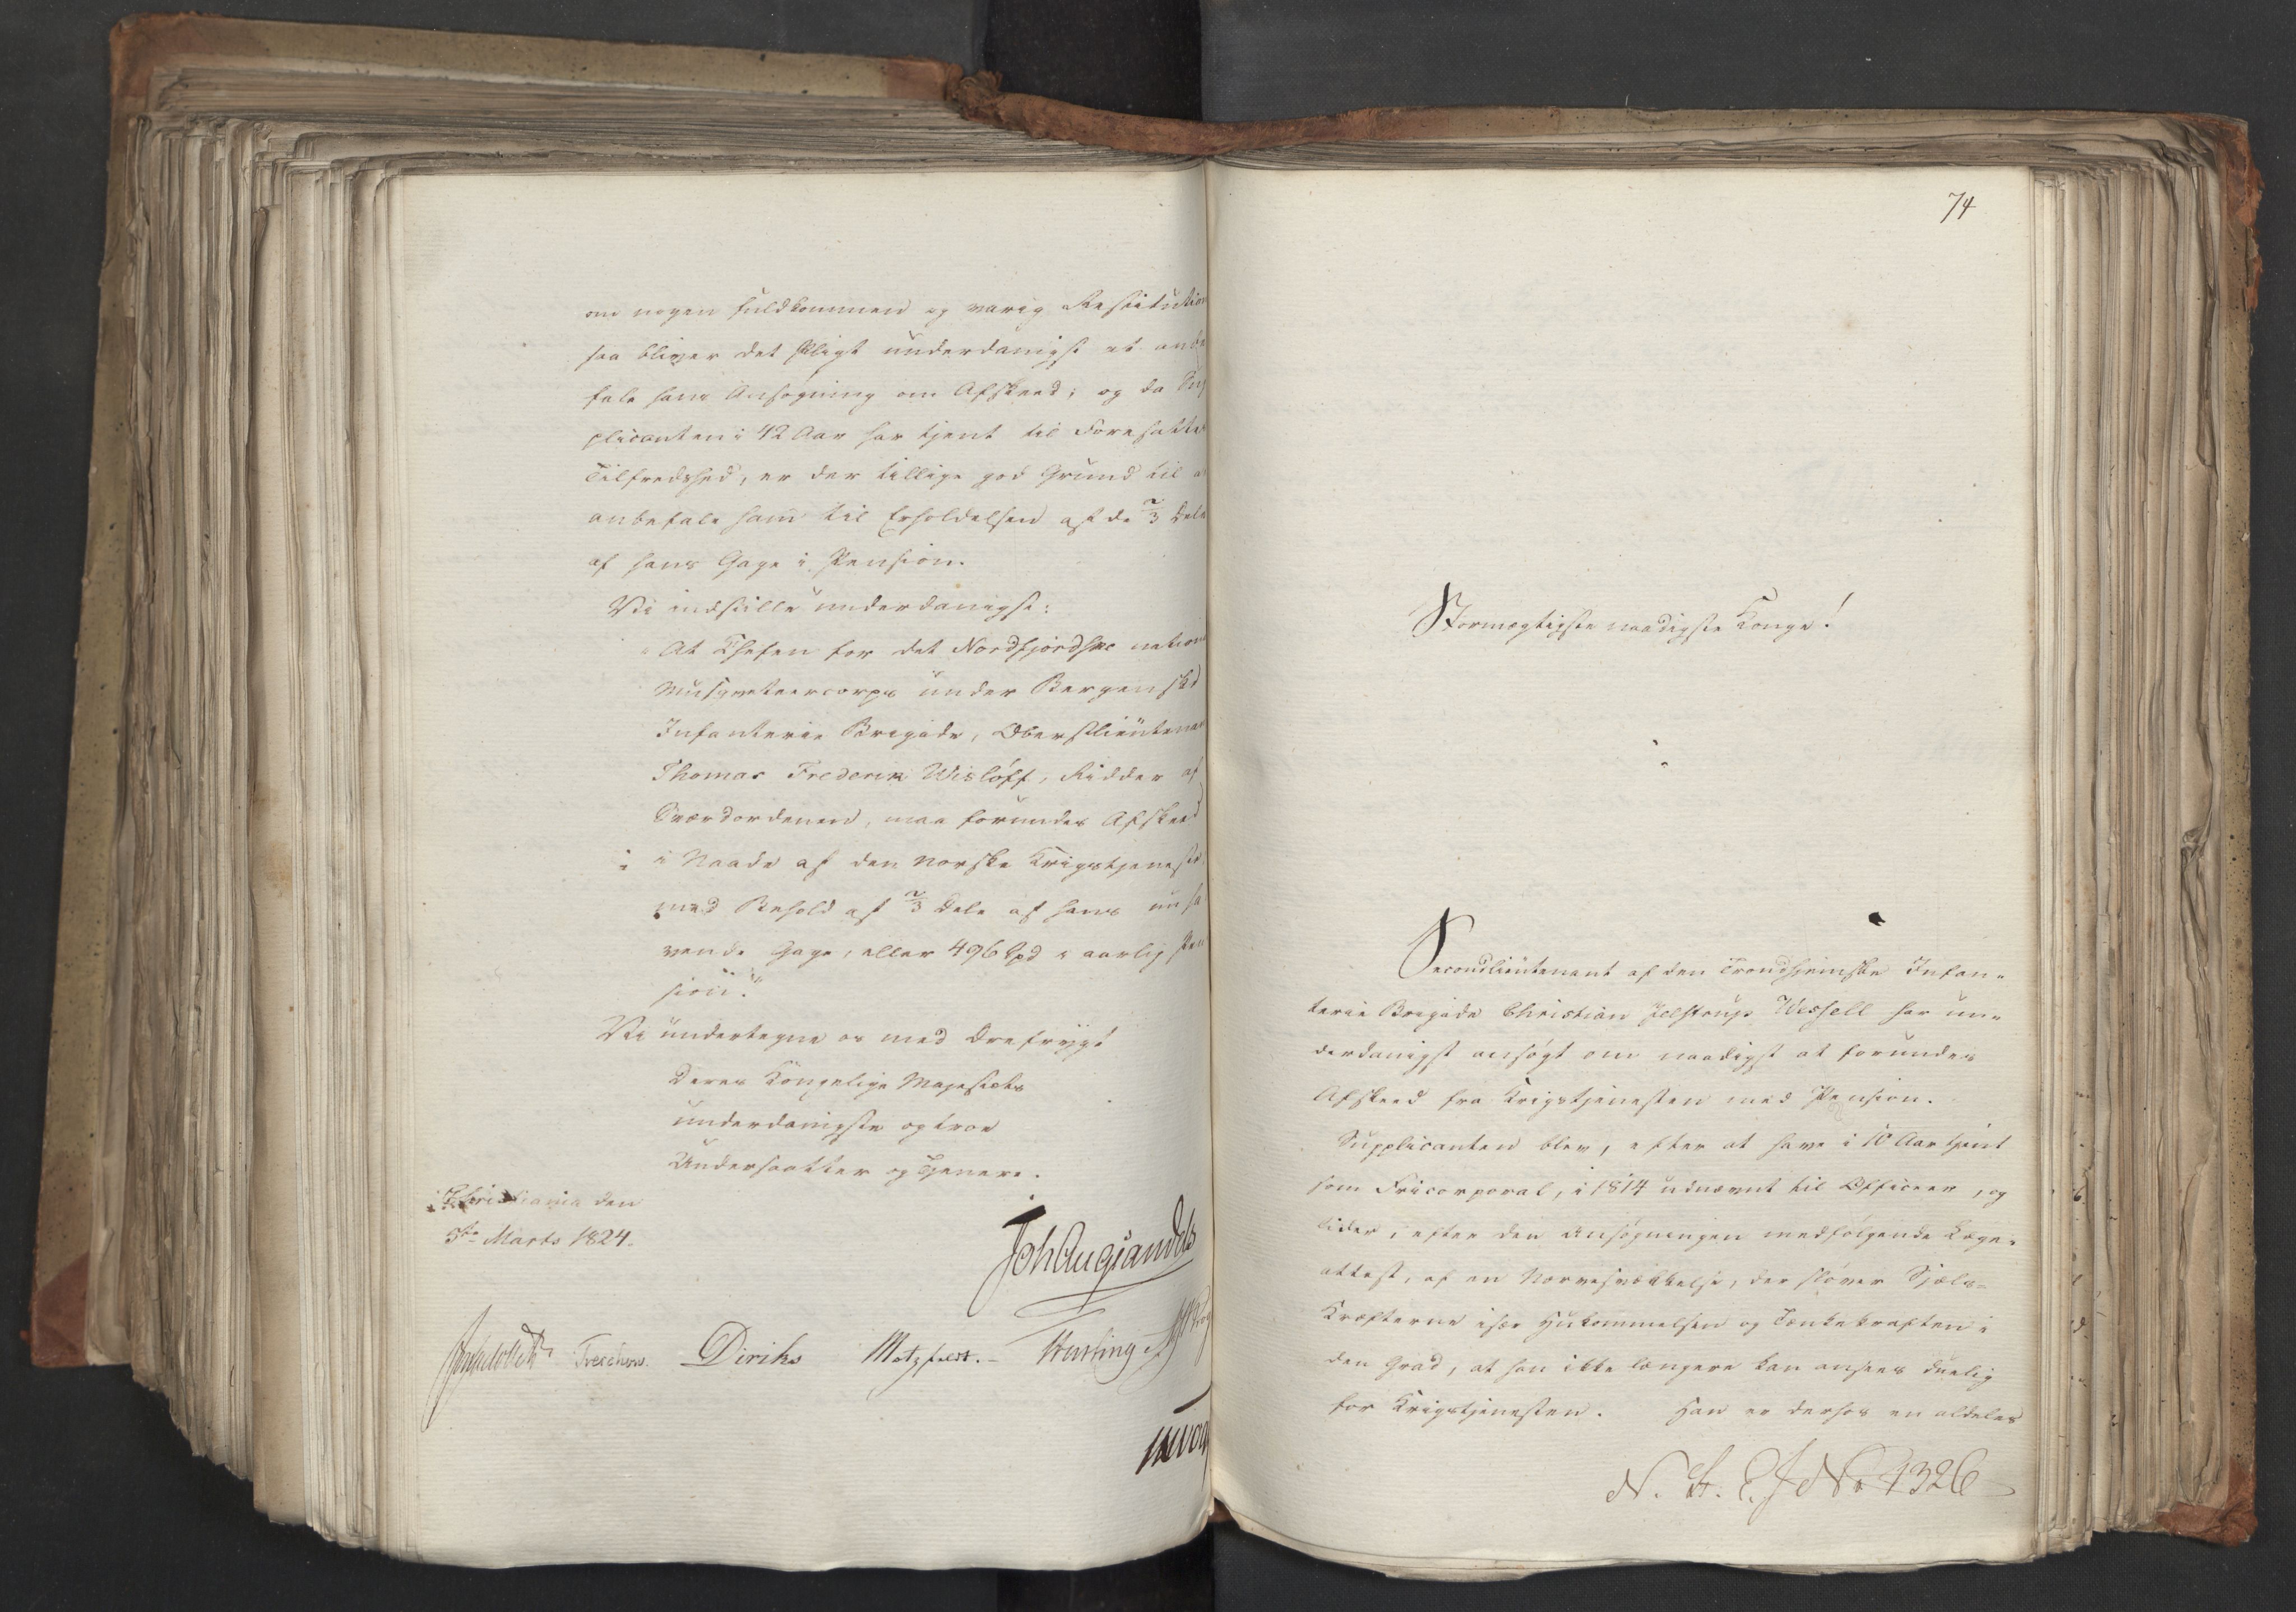 om nogen fuldkommen og varig Restitution
saa bliver det Pligt underdanigst at anbe
fale hans Ansøgning om Afskeed; og da Sup
plicanten i 42 Aar har tjent til Foresattes
Tilfredshed, er der tillige god Grund til at
anbefale ham til Erholdelsen af de 2/3 Dele
af hans Gage i Pension.
Vi indstille underdanigst:
"At Chefen for det Nordfjordske nation
Musqueteercorps under Bergenske
Infanterie Brigade, Oberstlieutenant
Thomas Frederik Wisløff, Ridder af
Sværdordenen, maa forundes Afskeed
i Naade af den norske Krigstjeneste
med Behold af 2/3 Dele af hans nu ha
vende Gage, eller 496 Spd i aarlig Pen
sion."
Vi undertegne os med Ærefrygt
Deres Kongelige Majestæts
underdanigste og troe
Undersaatter og Tjenere.
Christiania den
5te Marts 1824.
Joh Aug Sandels
Treschow. Diriks Motzfeldt.
74
Stormægtigste naadigste Konge!
Secondlieutenant af den Trondhjemske Infan-
terie Brigade Christian Jelstrup Wessell har un-
derdanigst ansøgt om naadigst at forundes
Afskeed fra Krigstjenesten med Pension.
Supplicanten blev, efter at have i 10 Aar tjent
som Fricorporal, i 1814 udnævnt til Officeer, og
lider, efter den Ansøgningen medfølgende Læge-
attest, af en Nervesvækkelse, der sløver Sjæls-
Kræfterne især Hukommelsen og Tænkekraften i
den Grad, at han ikke længere kan ansees duelig
for Krigstjenesten. Han er derhos en aldeles
N. St. E. J No 1326